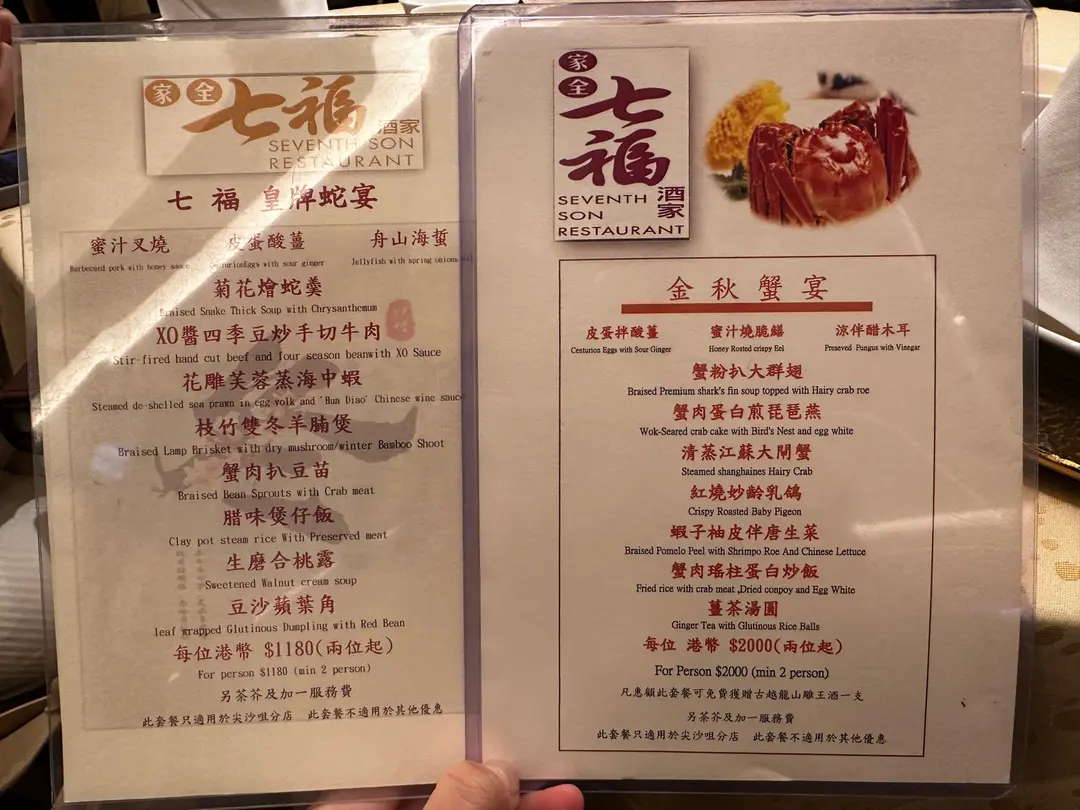 家 全 七福 酒家
SEVENTH SON
RESTAURANT
七 福 皇牌蛇宴
蜜汁叉燒 皮蛋酸薑 舟山海蜇
Barbecued pork with honey sauce CenturionEggs with sour ginger Jellyfish with spring onions oil
菊花燴蛇羹
Braised Snake Thick Soup with Chrysanthemum
XO醬四季豆炒手切牛肉
Stir-fired hand cut beef and four season beanwith XO Sauce
花雕芙蓉蒸海中蝦
Steamed de-shelled sea prawn in egg yolk and 'Hua Diao' Chinese wine sauce
枝竹雙冬羊腩煲
Braised Lamp Brisket with dry mushroom/winter Bamboo Shoot
蟹肉扒豆苗
Braised Bean Sprouts with Crab meat
腊味煲仔飯
Clay pot steam rice With Preserved meat
生磨合桃露
Sweetened Walnut cream soup
豆沙蘋葉角
leaf wrapped Glutinous Dumpling with Red Bean
每位港幣 $1180(兩位起)
For person $1180 (min 2 person)
另茶芥及加一服務費
此套餐只適用於尖沙咀分店 此套餐不適用於其他優惠
家
全
七
福
酒家
SEVENTH
SON
RESTAURANT
金秋蟹宴
皮蛋拌酸薑 蜜汁燒脆鱔 涼伴醋木耳
Centurion Eggs with Sour Ginger Honey Rosted crispy Eel Preseved Fungus with Vinegar
蟹粉扒大群翅
Braised Premium shark's fin soup topped with Hairy crab roe
蟹肉蛋白煎琵琶燕
Wok-Seared crab cake with Bird's Nest and egg white
清蒸江蘇大閘蟹
Steamed shanghaines Hairy Crab
紅燒妙齡乳鴿
Crispy Roasted Baby Pigeon
蝦子柚皮伴唐生菜
Braised Pomelo Peel with Shrimpo Roe And Chinese Lettuce
蟹肉瑤柱蛋白炒飯
Fried rice with crab meat ,Dried conpoy and Egg White
薑茶湯圓
Ginger Tea with Glutinous Rice Balls
每位 港幣 $2000(兩位起)
For Person $2000 (min 2 person)
凡惠顧此套餐可免費獲贈古越龍山雕王酒一支
另茶芥及加一服務費
此套餐只適用於尖沙咀分店 此套餐不適用於其他優惠